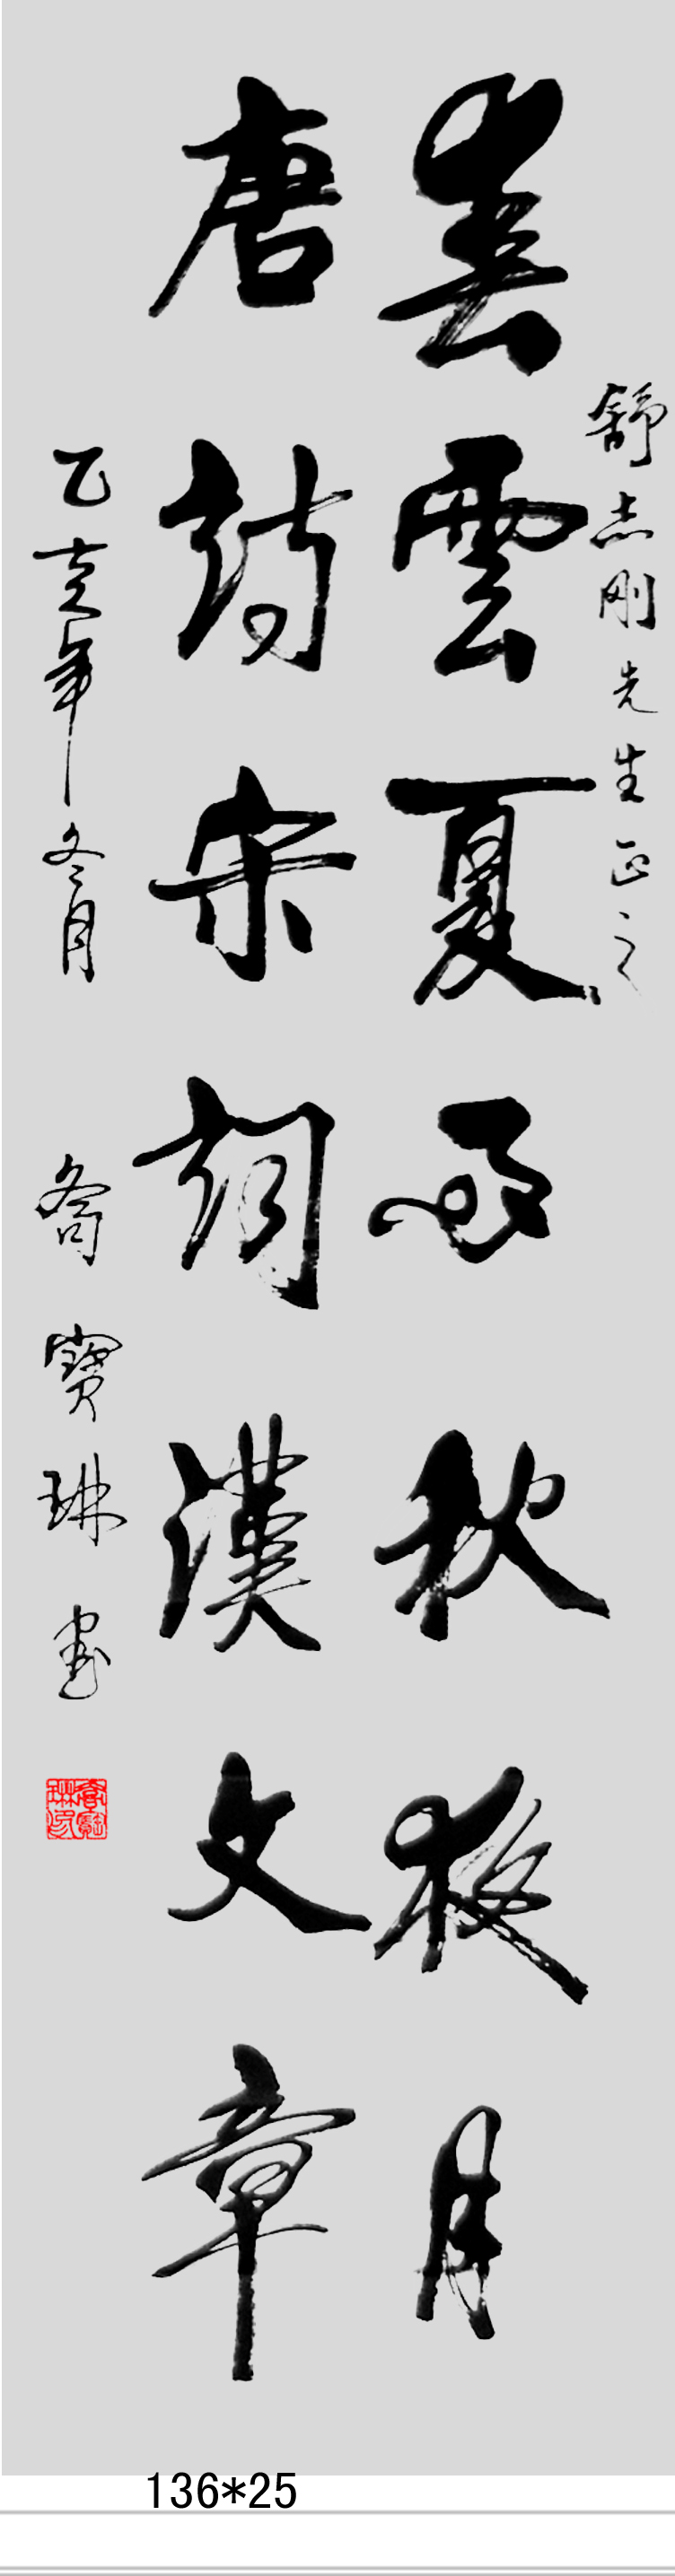 舒志刚先生正之
春雲夏雨秋夜月
唐詩宋詞漢文章
乙亥年冬月
喬寶琳書
136*25